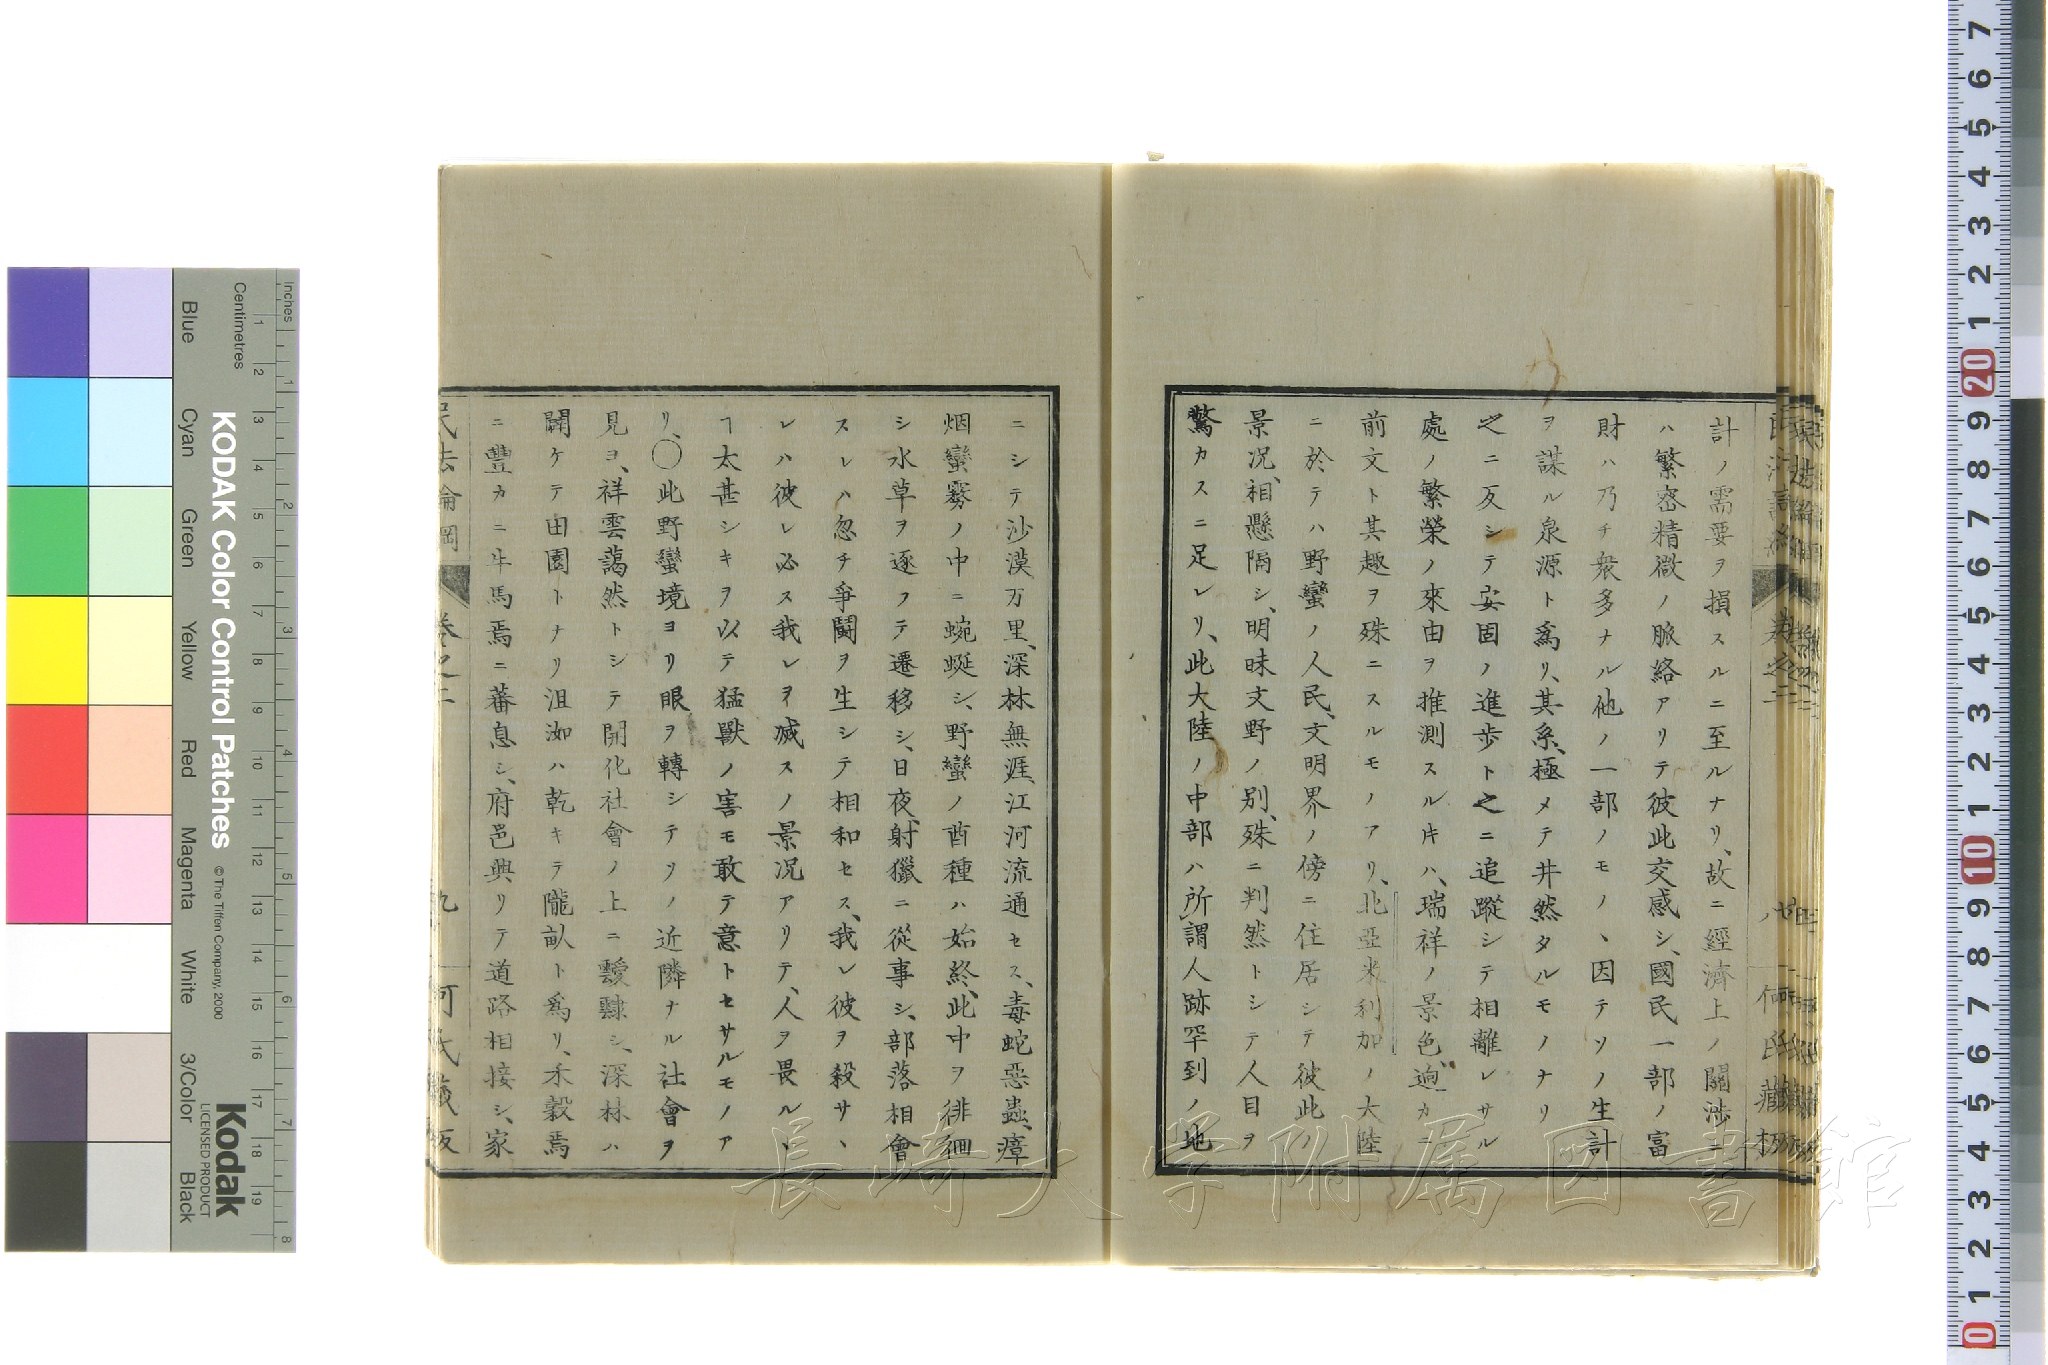 計ノ需要ヲ損スルニ至ルナリ、故ニ經濟上ノ關渉ニ
ハ繁密精微ノ脈絡アリテ彼此交感シ、國民一部ノ富
財ハ乃チ衆多ナル他ノ一部ノモノヽ因テソノ生計
ヲ謀ル泉源ト爲リ、其系、極メテ井然タルモノナリ
之ニ反シテ安固ノ進歩ト之ニ追蹤シテ相離レサル
處ノ繁榮ノ來由ヲ推測スル片ハ、瑞祥ノ景色、逈カニ
前文ト其趣ヲ殊ニスルモノアリ、北亞米利加ノ大陸
ニ於テハ野蠻ノ人民、文明界ノ傍ニ住居シテ彼此ノ
景况、相懸隔シ、明昧文野ノ別、殊ニ判然トシテ人目ヲ
驚カスニ足レリ、此大陸ノ中部ハ所謂人跡罕到ノ地
ニシテ沙漠万里、深林無涯、江河流通セス、毒蛇惡蟲、瘴
烟蠻霧ノ中ニ蜿蜒シ、野蠻ノ酋種ハ始終、此中ヲ徘徊
シ水草ヲ逐フテ遷移シ、日夜、射獵ニ從事シ、部落相會
スレハ忽チ爭鬪ヲ生シテ相和セス、我レ彼ヲ殺サヽ
レハ彼レ必ス我レヲ滅スノ景况アリテ、人ヲ畏ルヽ
ヿ太甚シキヲ以テ猛獸ノ害モ敢テ意トセサルモノア
リ、〇此野蠻境ヨリ眼ヲ轉シテソノ近隣ナル社會ヲ
見ヨ、祥雲藹然トシテ開化社會ノ上ニ靉靆シ、深林ハ
闢ケテ田園トナリ沮洳ハ乾キテ隴畝ト爲リ、禾穀焉
ニ豐カニ牛馬焉ニ蕃息シ、府邑興リテ道路相接シ、家
民法論綱
卷之二
九
何氏藏板
長崎大学附属図書館
KODAK Color Control Patches
© The Tiffen Company, 2000
Kodak
LICENSED PRODUCT
Inches
Centimetres
Blue
Cyan
Green
Yellow
Red
Magenta
White
3/Color
Black